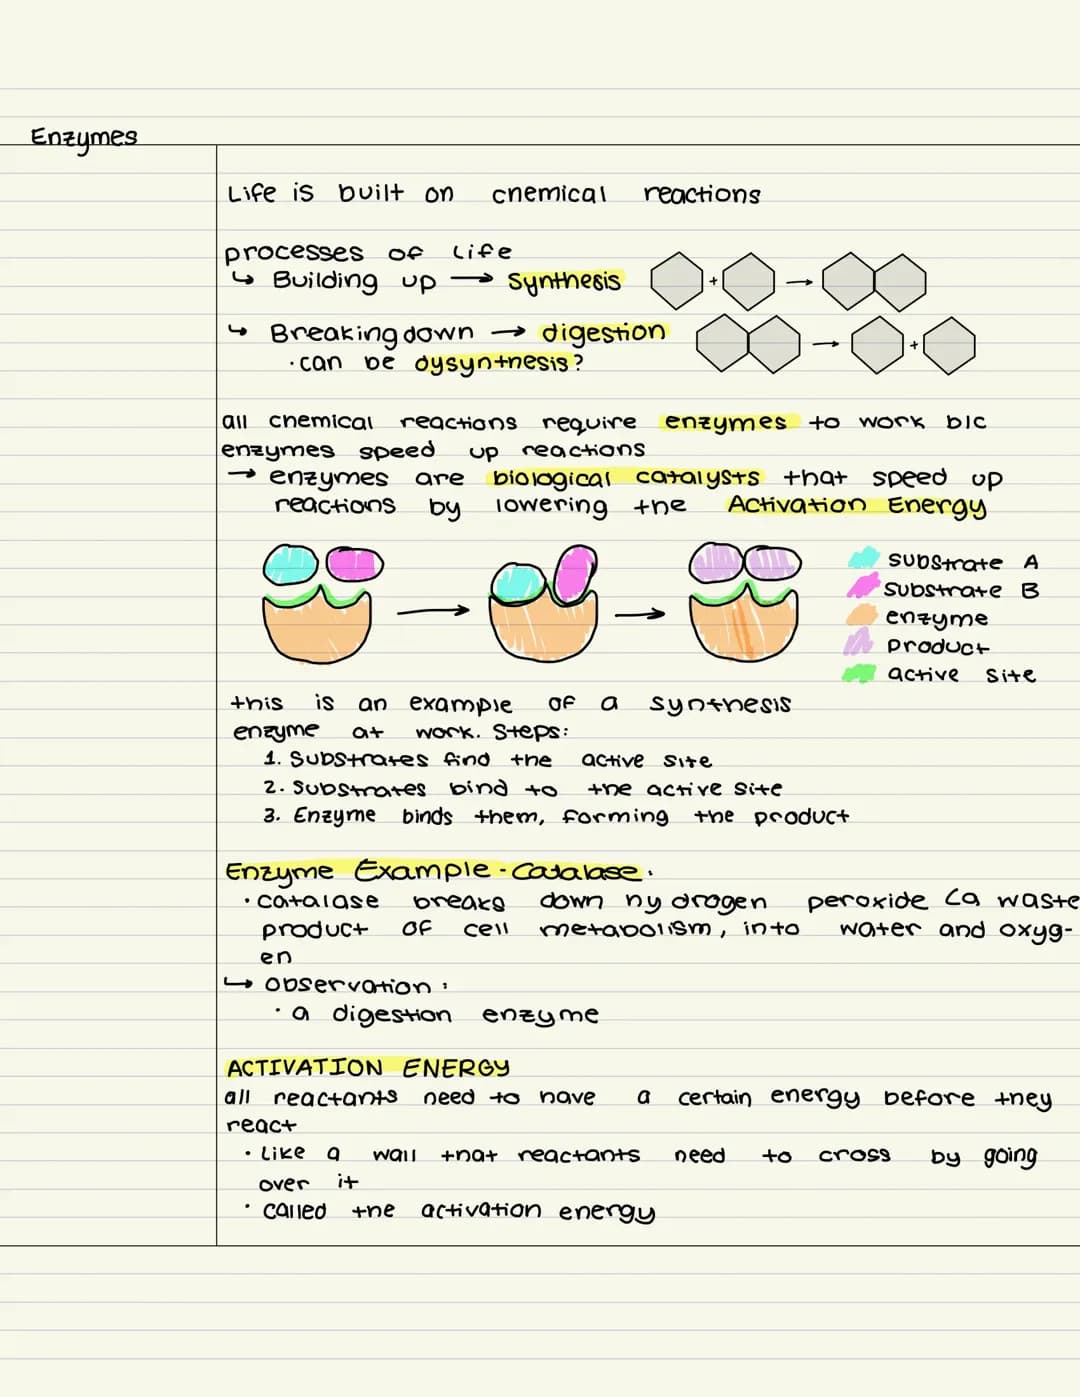 Enzymes
Life is built on chemical reactions
processes of life
↳ Building up → synthesis
+ →
↳ Breaking down → digestion
→ +
· can be dysynthesis?
all chemical reactions require enzymes to work b/c
enzymes speed up reactions
→ enzymes are biological catalysts that speed up
reactions by lowering the Activation Energy
substrate A
substrate B
enzyme
product
active site
this is an example of a synthesis
enzyme at work. Steps:
1. Substrates find the active site
2. Substrates bind to the active site
3. Enzyme binds them, forming the product
Enzyme Example - Catalase.
· catalase breaks down hydrogen peroxide (a waste
product of cell metabolism, into water and oxyg-
en
↳ observation:
· a digestion enzyme
ACTIVATION ENERGY
all reactants need to have a certain energy before they
react
· Like a wall that reactants need to cross by going
over it
· called the activation energy